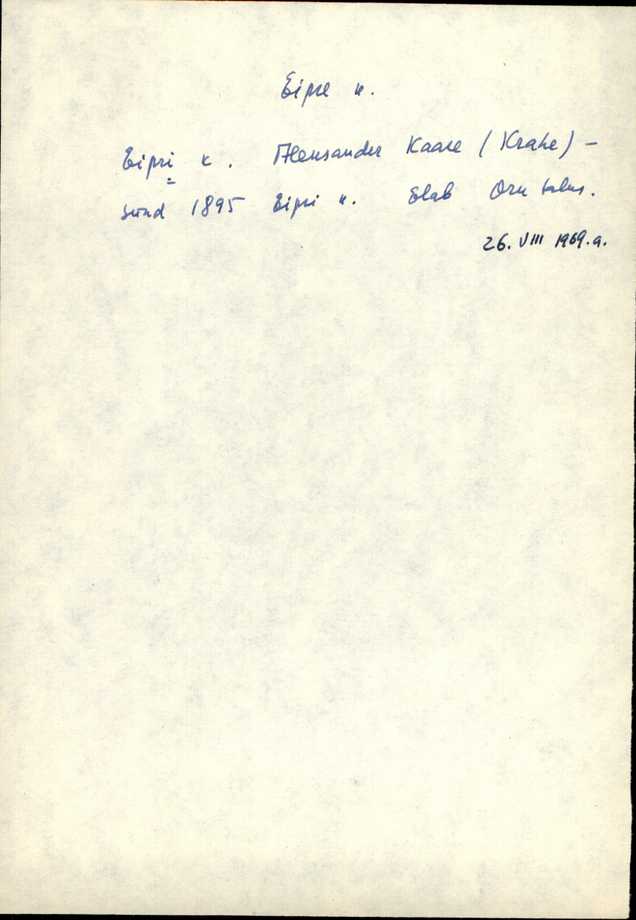 Eipre k.
Eipri k. Aleksander Kaare (Krahe) –
sünd 1895 Eipri k. Elab Oru talus.
26. VIII 1969.a.